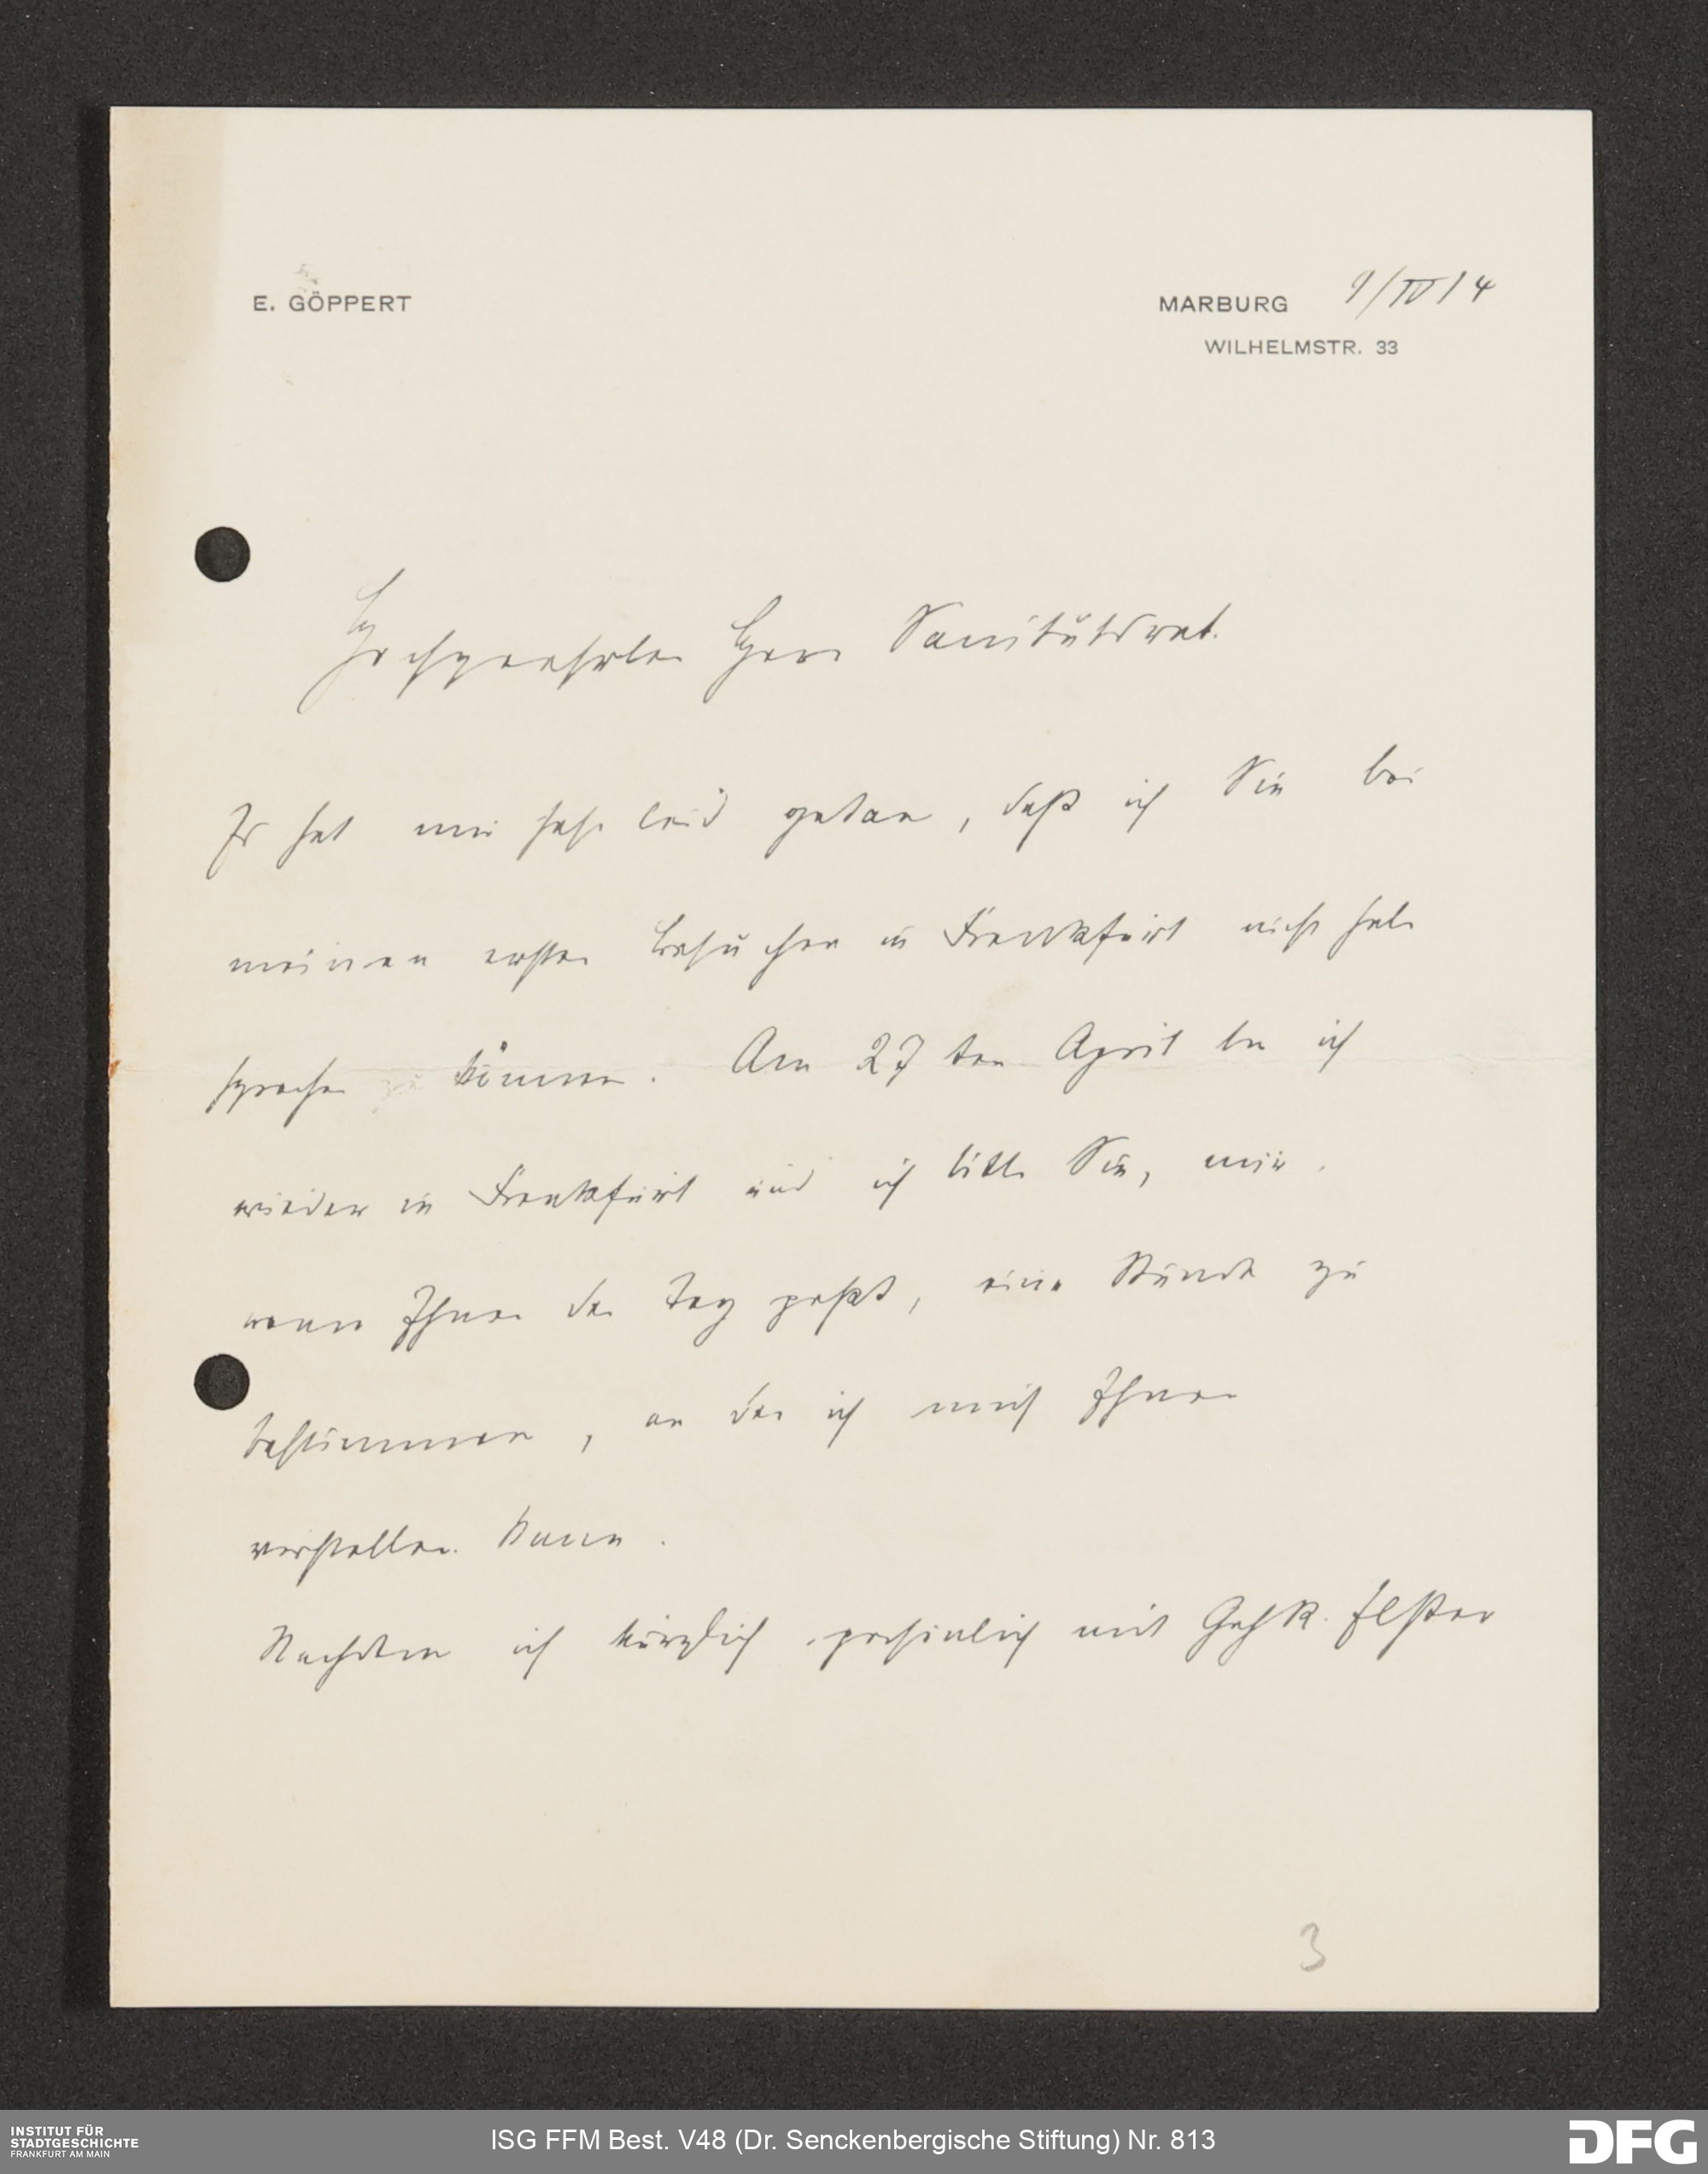 E. GÖPPERT
MARBURG 9/IV 14
WILHELMSTR. 33
Hochgeehrter Herr Sanitätsrat.
Es hat mir sehr leid getan, daß ich Sie bei
meinen ersten Besuchen in Frankfurt nicht habe
sprechen können. Am 27ten April bin ich
wieder in Frankfurt und ich bitte Sie, mir,
wenn Ihnen der Tag paßt, eine Stunde zu
bestimmen, an der ich mich Ihnen
vorstellen kann.
Nachdem ich kürzlich persönlich mit GehR. Elster
3
INSTITUT FÜR
STADTGESCHICHTE
FRANKFURT AM MAIN
ISG FFM Best. V48 (Dr. Senckenbergische Stiftung) Nr. 813
DFG